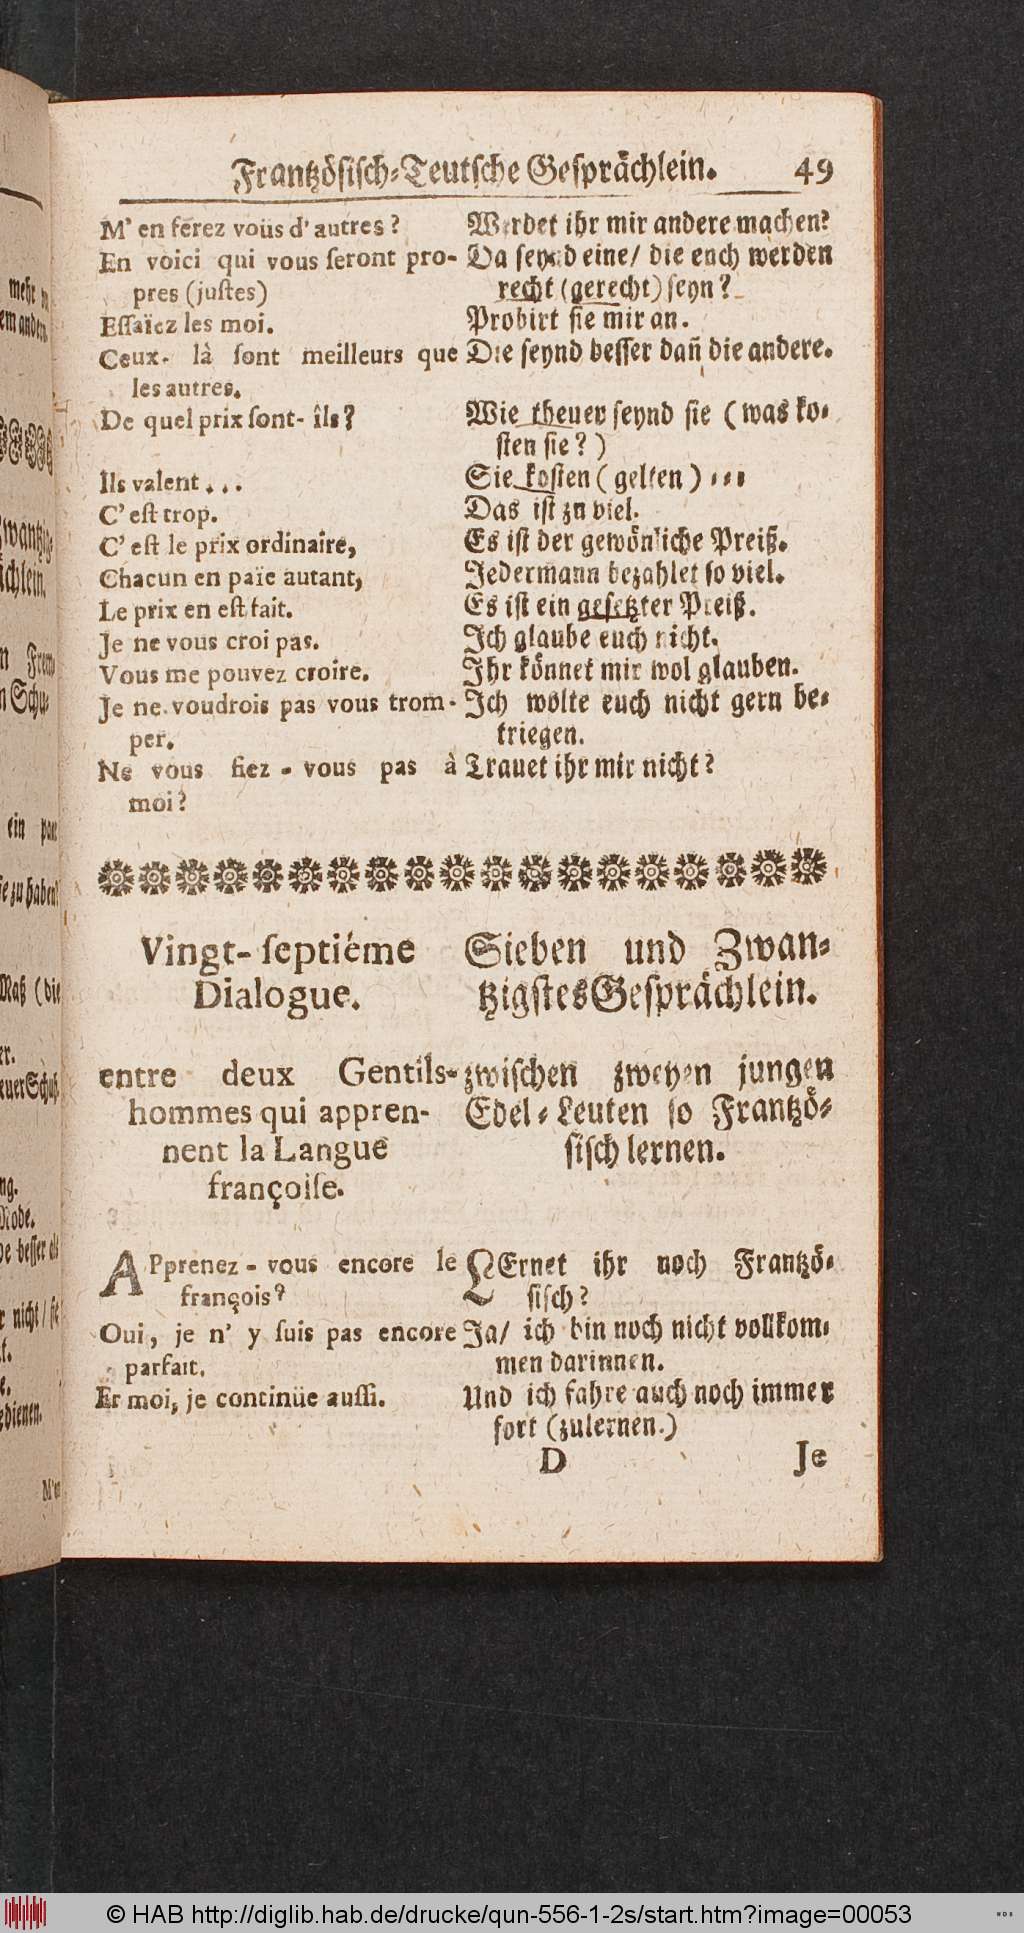 Frantzöſiſch-Teutſche Geſprächlein. 49
M' en ferez voüs d' autres?
En voici qui vous ſeront pro-
pres (juſtes)
Eſſaïez les moi.
Ceux- là ſont meilleurs que
les autres.
De quel prix ſont- ils?
Ils valent . . .
C' eſt trop.
C' eſt le prix ordinaire,
Chacun en païe autant,
Le prix en eſt fait.
Je ne vous croi pas.
Vous me pouvez croire.
Je ne voudrois pas vous trom-
per.
Ne vous fiez - vous pas à
moi?
Werdet ihr mir andere machen?
Da ſeynd eine/ die euch werden
recht (gerecht) ſeyn?
Probirt ſie mir an.
Die ſeynd beſſer dañ die andere.
Wie theuer ſeynd ſie (was ko-
ſten ſie?)
Sie koſten (gelten) ...
Das iſt zu viel.
Es iſt der gewönliche Preiß.
Jedermann bezahlet ſo viel.
Es iſt ein geſetzter Preiß.
Ich glaube euch nicht.
Ihr könnet mir wol glauben.
Ich wolte euch nicht gern be-
triegen.
Trauet ihr mir nicht?
Vingt- ſeptiéme
Dialogue.
entre deux Gentils-
hommes qui appren-
nent la Langue
françoiſe.
Sieben und Zwan-
tzigſtes Geſprächlein.
zwiſchen zweyen jungen
Edel-Leuten ſo Frantzö-
ſiſch lernen.
APprenez - vous encore le
françois?
Oui, je n' y ſuis pas encore
parfait.
Et moi, je continüe auſſi.
LErnet ihr noch Frantzö-
ſiſch?
Ja/ ich bin noch nicht vollkom-
men darinnen.
Und ich fahre auch noch immer
fort (zulernen.)
D Je
© HAB http://diglib.hab.de/drucke/qun-556-1-2s/start.htm?image=00053